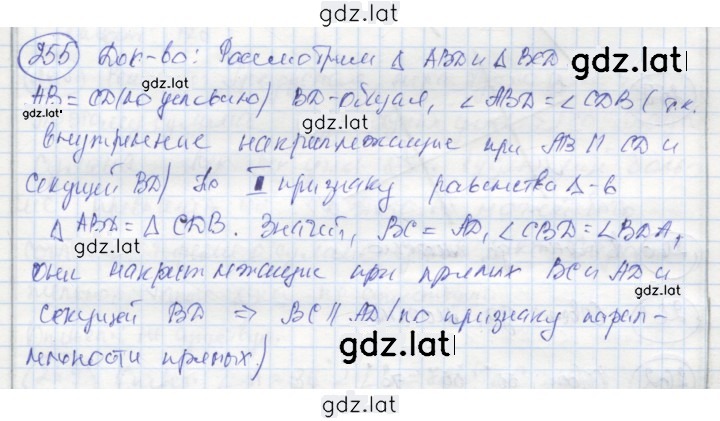 gdz.lat
255 Док-во: Рассмотрим Δ ABD и Δ BCD gdz.lat
gdz.lat
AB = CD (по условию) BD - общая, ∠ ABD = ∠ CDB (т.к.
gdz.lat
внутренние накрест лежащие при AB || CD и
секущей BD) По I признаку равенства Δ-в
Δ ABD = Δ CDB. Значит, BC = AD, ∠ CBD = ∠ BDA,
gdz.lat
они накрест лежащие при прямых BC и AD и
секущей BD ⇒ BC || AD (по признаку парал-
лельности прямых)
gdz.lat
gdz.lat